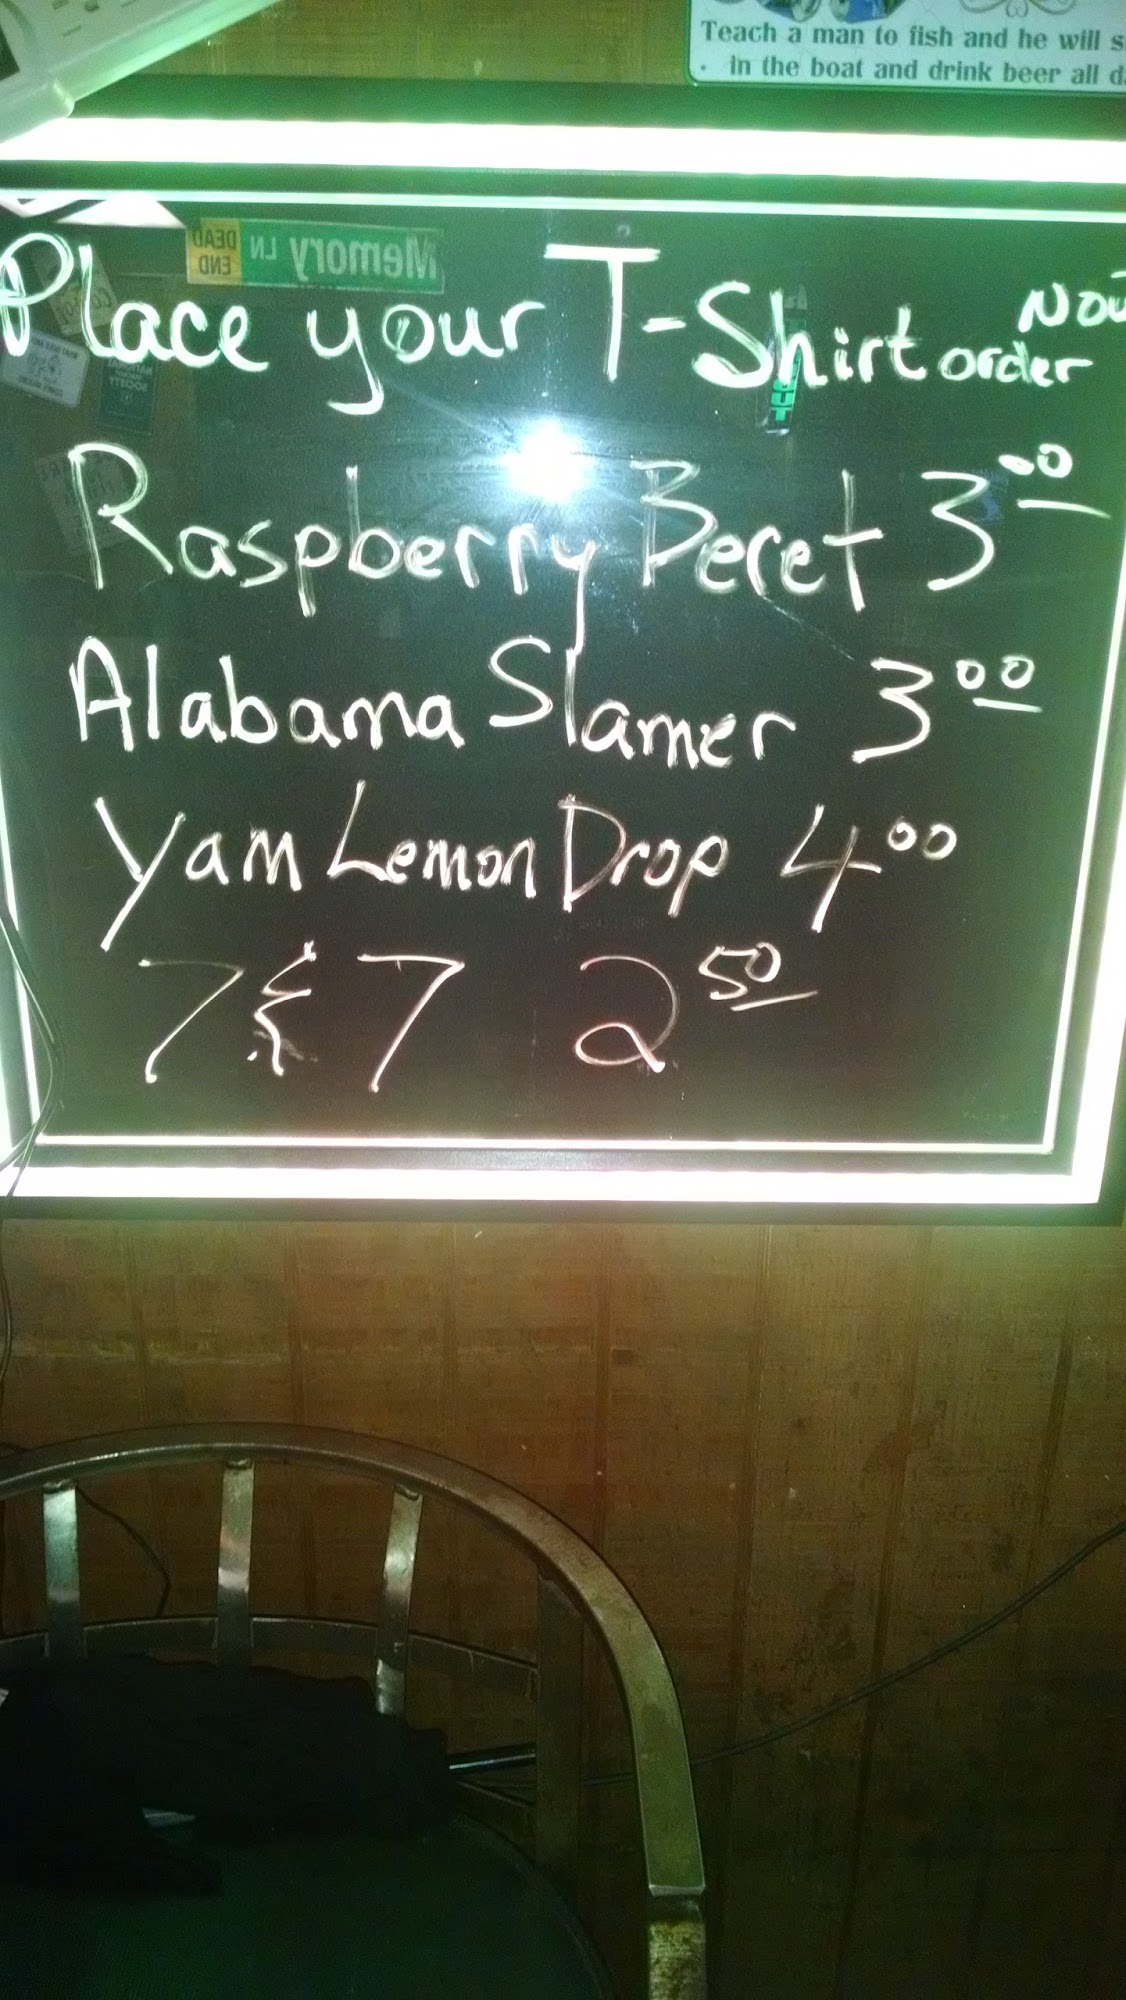 Teach a man to fish and he will
in the boat and drink beer all
DEAD END Memory LN
Place your T-Shirt order Now
Raspberry Beret 3.00
Alabama Slamer 3 00
Yam Lemon Drop 4 00
7 & 7 2 50